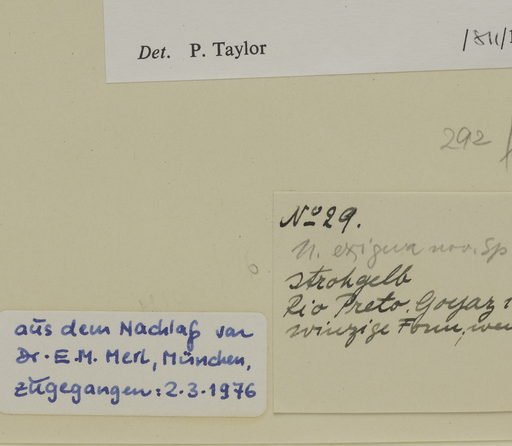 Det. P. Taylor
292
No 29.
U. exigua nov. sp
strohgelb
Rio Preto. Goyaz
winzige Form, wen
aus dem Nachlaß von
Dr. E.M. Merl, München,
zugegangen: 2.3.1976